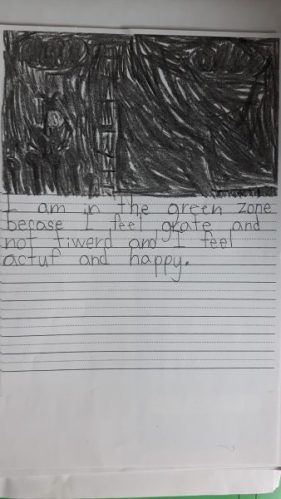 I am in the green zone
becase I feel grate and
not tiwerd and I feel
actuf and happy.